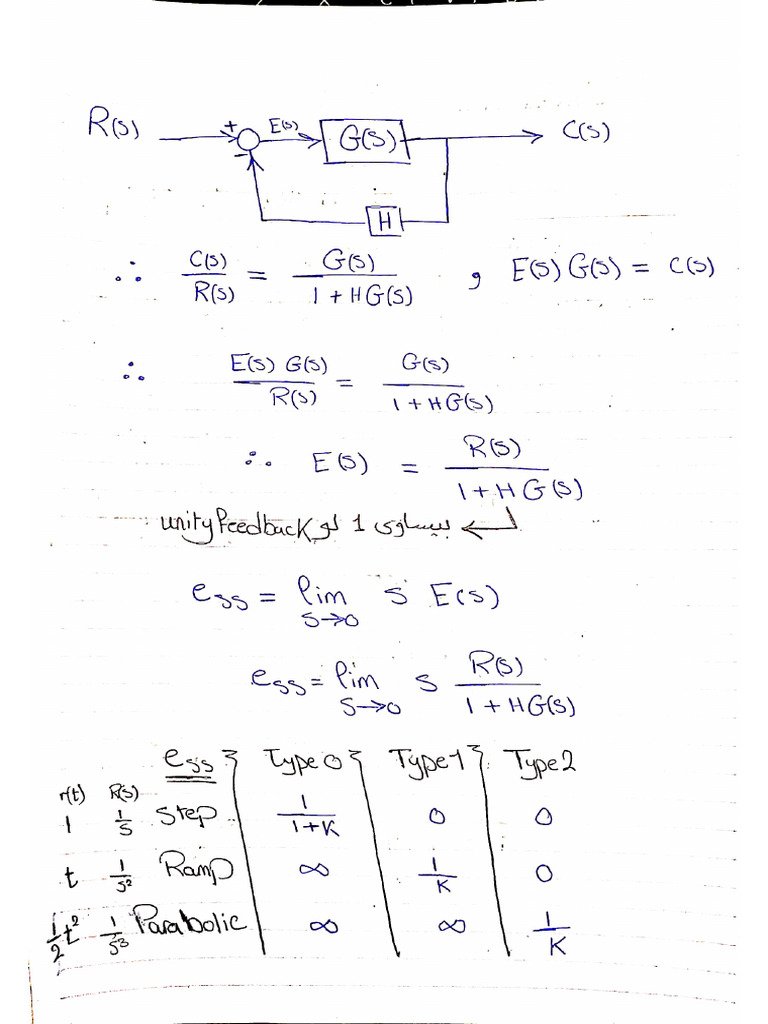 R(s) + E(s) G(s) C(s)
-
H
∴ C(s)/R(s) = G(s)/(1 + HG(s)) , E(s) G(s) = C(s)
∴ E(s) G(s)/R(s) = G(s)/(1 + HG(s))
∴ E(s) = R(s)/(1 + H G(s))
بيساوى 1 لو unity feedback
ess = lim s→0 s E(s)
ess = lim s→0 s R(s)/(1 + HG(s))
ess Type 0 Type 1 Type 2
r(t) R(s)
1 1/s Step 1/(1+K) 0 0
t 1/s² Ramp ∞ 1/K 0
1/2 t² 1/s³ Parabolic ∞ ∞ 1/K